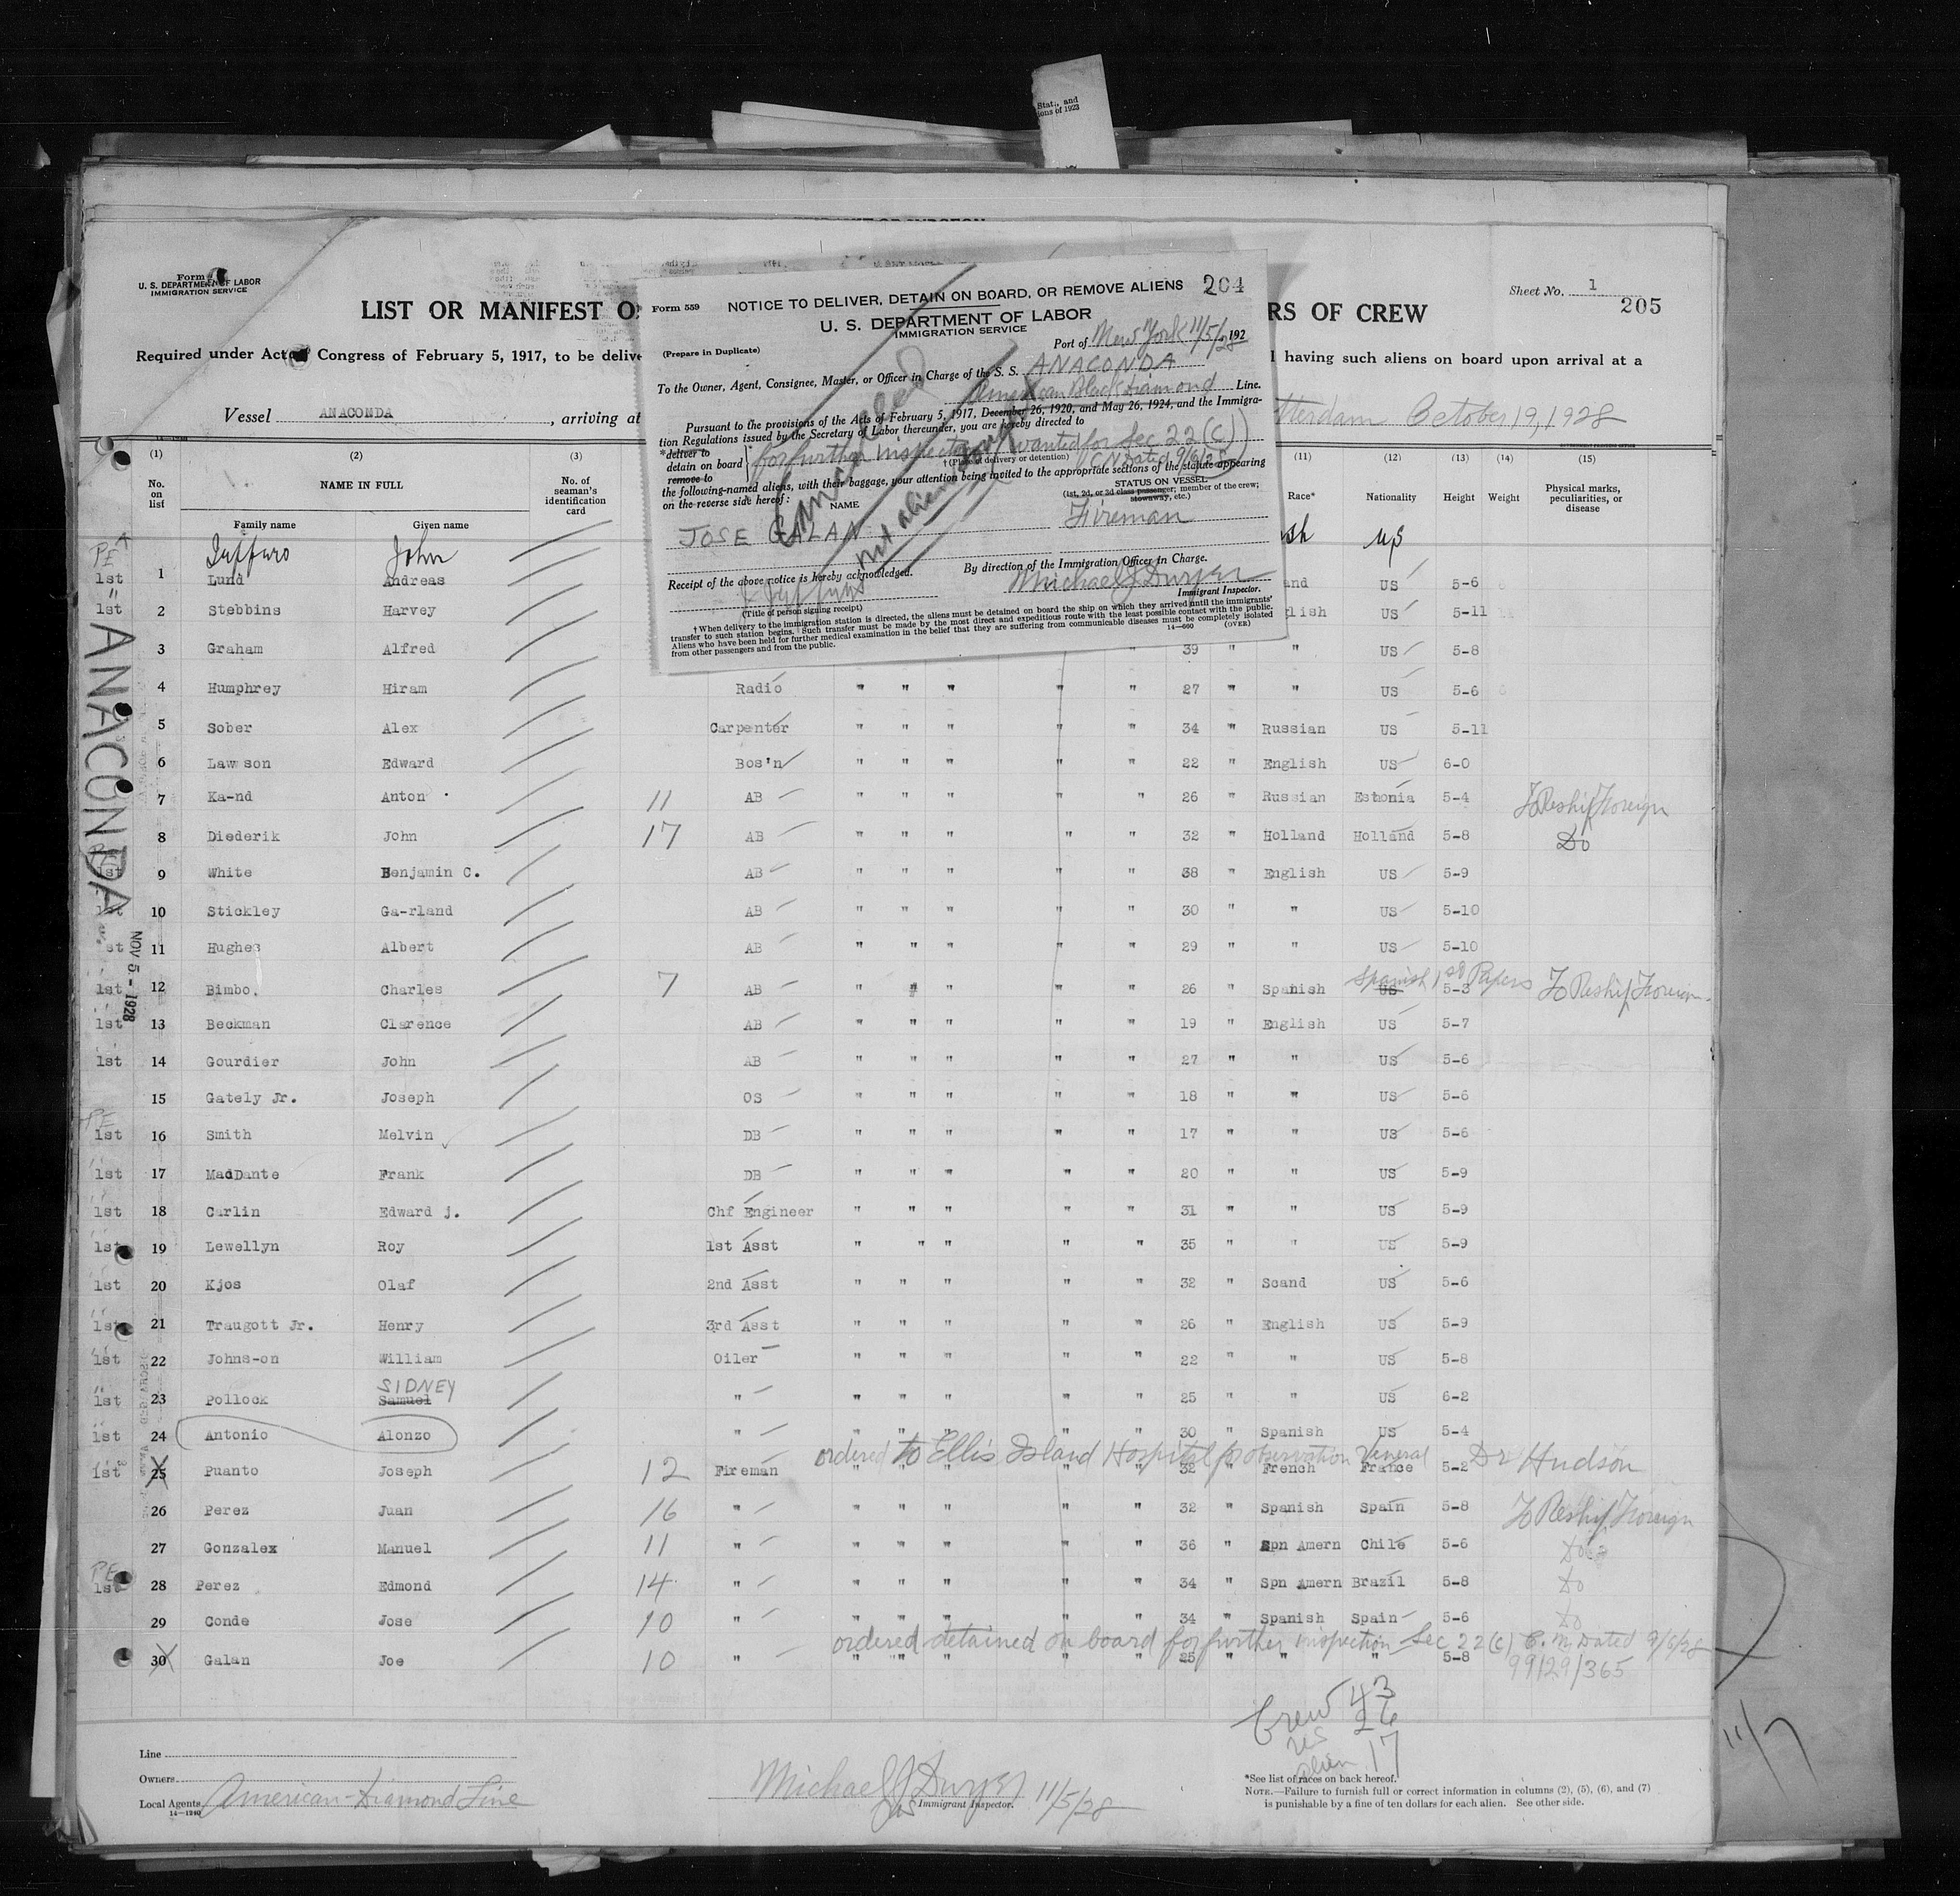 Stat., and
ions of 1923
Form
U. S. DEPARTMENT OF LABOR
IMMIGRATION SERVICE
Sheet No. 1
205
LIST OR MANIFEST O
RS OF CREW
Required under Act of Congress of February 5, 1917, to be delive
l having such aliens on board upon arrival at a
Vessel ANACONDA , arriving at
tterdam October 19, 1928
Form 559
NOTICE TO DELIVER, DETAIN ON BOARD, OR REMOVE ALIENS 204
U. S. DEPARTMENT OF LABOR
IMMIGRATION SERVICE
(Prepare in Duplicate)
Port of New York 11/5/28 192
To the Owner, Agent, Consignee, Master, or Officer in Charge of the S. S. ANACONDA
American Black Diamond Line.
Pursuant to the provisions of the Acts of February 5, 1917, December 26, 1920, and May 26, 1924, and the Immigra-
tion Regulations issued by the Secretary of Labor thereunder, you are hereby directed to
*deliver to
detain on board
remove to
for further inspection (wanted for Sec 22 (C)
† (Place of delivery or detention)
Dated 9/6/28)
the following-named aliens, with their baggage, your attention being invited to the appropriate sections of the statute appearing
on the reverse side hereof:
NAME
STATUS ON VESSEL
(1st, 2d, or 3d class passenger; member of the crew;
stowaway, etc.)
JOSE GALAN Fireman
not alien
Receipt of the above notice is hereby acknowledged.
By direction of the Immigration Officer in Charge.
Michael J Dwyer
Immigrant Inspector.
(Title of person signing receipt)
† When delivery to the immigration station is directed, the aliens must be detained on board the ship on which they arrived until the immigrants'
transfer to such station begins. Such transfer must be made by the most direct and expeditious route with the least possible contact with the public.
Aliens who have been held for further medical examination in the belief that they are suffering from communicable diseases must be completely isolated
from other passengers and from the public.
14—660 (OVER)
(1) (2) (3) (11) (12) (13) (14) (15)
No. on list
NAME IN FULL
Family name Given name
No. of seaman's identification card
Race* Nationality Height Weight
Physical marks, peculiarities, or disease
John sh US
1st 1 Lund Andreas and US 5-6
1st 2 Stebbins Harvey glish US 5-11
3 Graham Alfred " 39 " " US 5-8
4 Humphrey Hiram Radio " " " " " 27 " " US 5-6
5 Sober Alex Carpenter " " " " " 34 " Russian US 5-11
6 Lawson Edward Bos'n " " " " " 22 " English US 6-0
7 Ka-nd Anton 11 AB " " " " " 26 " Russian Estonia 5-4 To Reship Foreign
8 Diederik John 17 AB " " " " " 32 " Holland Holland 5-8 Do
1st 9 White Benjamin C. AB " " " " " 38 " English US 5-9
1st 10 Stickley Ga-rland AB " " " " " 30 " " US 5-10
st 11 Hughes Albert AB " " " " " 29 " " US 5-10
1st 12 Bimbo. Charles 7 AB " " " " " 26 " Spanish US Spanish 1st Papers 5-3 To Reship Foreign
1st 13 Beckman Clarence AB " " " " " 19 " English US 5-7
1st 14 Gourdier John AB " " " " " 27 " " US 5-6
15 Gately Jr. Joseph OS " " " " " 18 " " US 5-6
PE
1st 16 Smith Melvin DB " " " " " 17 " " US 5-6
1st 17 MadDante Frank DB " " " " " 20 " " US 5-9
1st 18 Carlin Edward j. Chf Engineer " " " " " 31 " " US 5-9
1st 19 Lewellyn Roy 1st Asst " " " " " 35 " " US 5-9
1st 20 Kjos Olaf 2nd Asst " " " " " 32 " Scand US 5-6
1st 21 Traugott Jr. Henry 3rd Asst " " " " " 26 " English US 5-9
1st 22 Johns-on William Oiler " " " " " 22 " " US 5-8
SIDNEY
1st 23 Pollock Samuel " " " " " " 25 " " US 6-2
1st 24 Antonio Alonzo " " " " " " 30 " Spanish US 5-4
ordered to Ellis Island Hospital for observation Veneral Dr Hudson
1st 25 Puanto Joseph 12 Fireman " " " " " 32 " French France 5-2
26 Perez Juan 16 " " " " " " 32 " Spanish Spain 5-8 To Reship Foreign
27 Gonzalex Manuel 11 " " " " " " 36 " Spn Amern Chile 5-6 Do
PE
1st 28 Perez Edmond 14 " " " " " " 34 " Spn Amern Brazil 5-8 Do
29 Conde Jose 10 " " " " " " 34 " Spanish Spain 5-6 Do
ordered detained on board for further inspection Sec 22 (C) Dated 9/6/28
30 Galan Joe 10 " " " " " " 25 " " " 5-8 99129/365
ANACONDA
NOV 5 - 1928
Crew 43
US 26
alien 17
11/7
Line
Owners
Local Agents American Diamond Line
14—1240
Michael J Dwyer 11/5/28
Immigrant Inspector.
*See list of races on back hereof.
NOTE.—Failure to furnish full or correct information in columns (2), (5), (6), and (7)
is punishable by a fine of ten dollars for each alien. See other side.